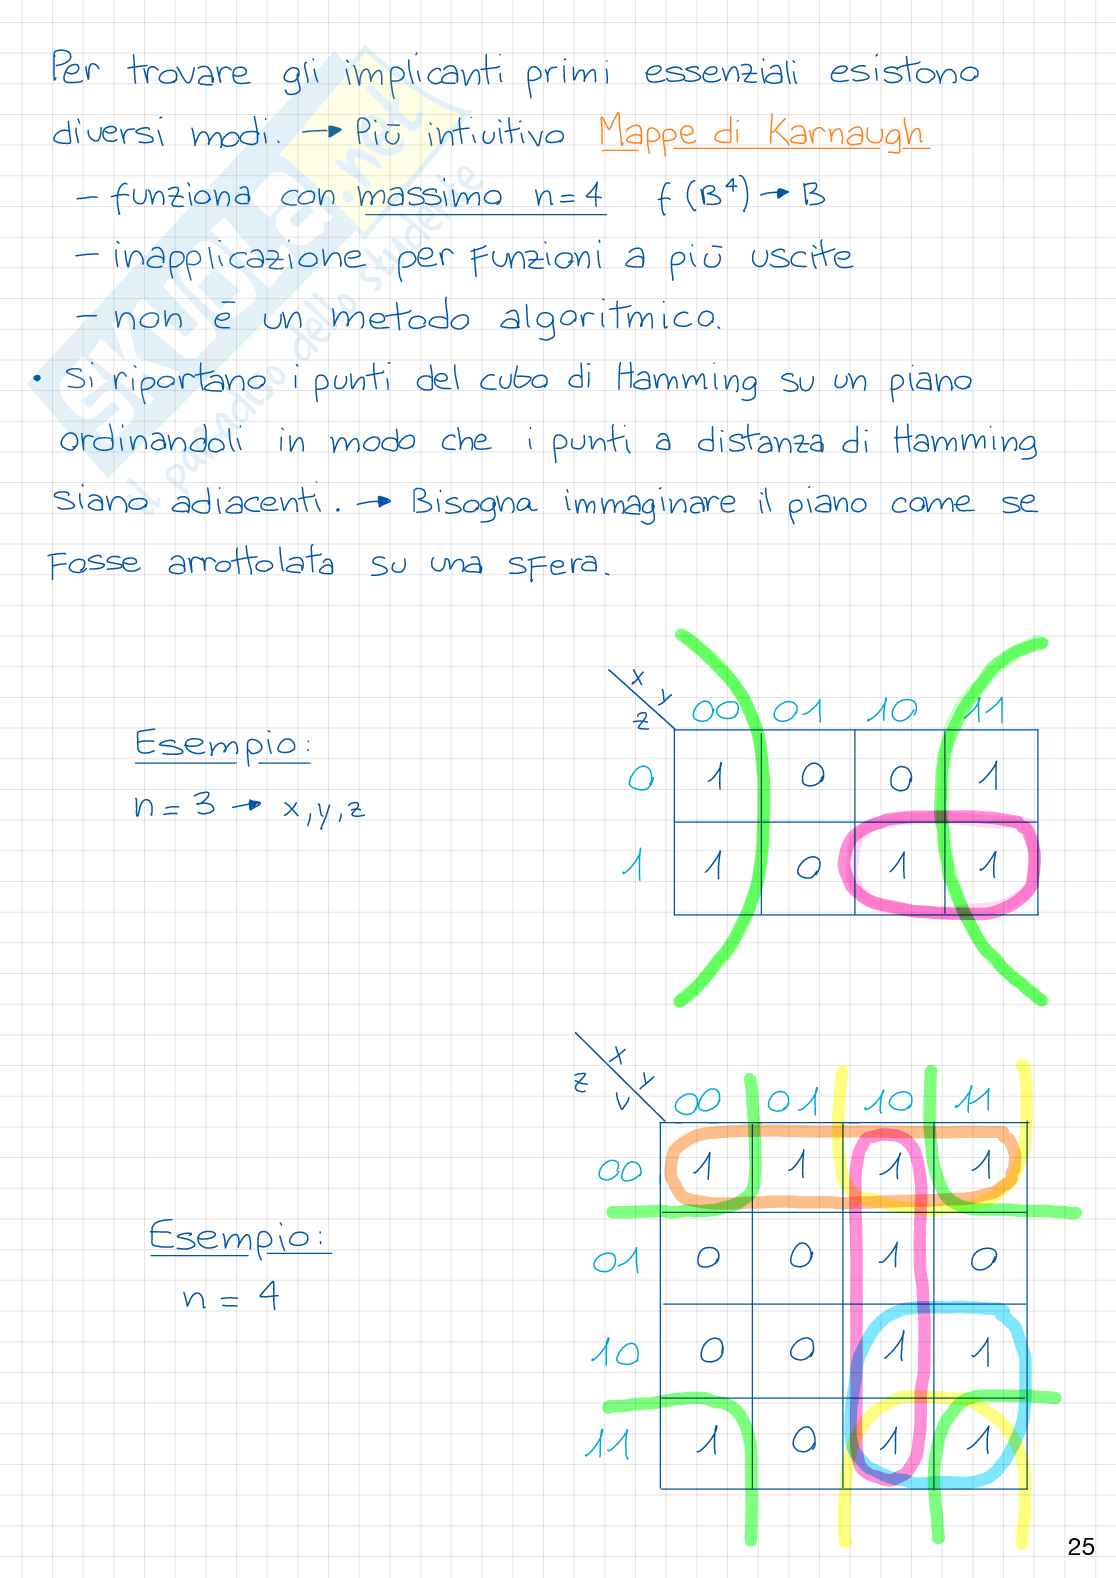 Per trovare gli implicanti primi essenziali esistono
diversi modi. → Più intiuitivo Mappe di Karnaugh
- funziona con massimo n=4 f (B⁴) → B
- inapplicazione per funzioni a più uscite
- non è un metodo algoritmico.
• Si riportano i punti del cubo di Hamming su un piano
ordinandoli in modo che i punti a distanza di Hamming
siano adiacenti. → Bisogna immaginare il piano come se
fosse arrottolata su una sfera.
x y
z 00 01 10 11
Esempio:
0 1 0 0 1
n = 3 → x, y, z
1 1 0 1 1
x y
z v 00 01 10 11
00 1 1 1 1
Esempio:
01 0 0 1 0
n = 4
10 0 0 1 1
11 1 0 1 1
25
SKUOLA.net
il paradiso dello studente